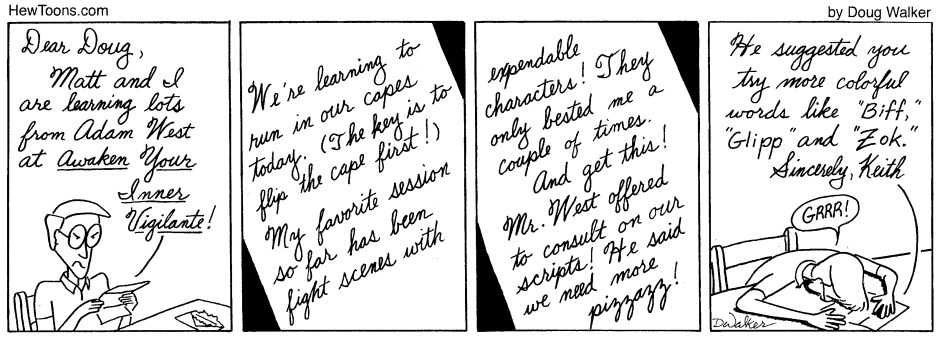 HewToons.com
by Doug Walker
Dear Doug,
Matt and I
are learning lots
from Adam West
at Awaken Your
Inner
Vigilante!
We're learning to
run in our capes
today. (The key is to
flip the cape first!)
My favorite session
so far has been
fight scenes with
expendable
characters! They
only bested me a
couple of times.
And get this!
Mr. West offered
to consult on our
scripts! He said
we need more
pizzazz!
He suggested you
try more colorful
words like "Biff,"
"Glipp" and "Zok."
Sincerely, Keith
GRRR!
DWalker